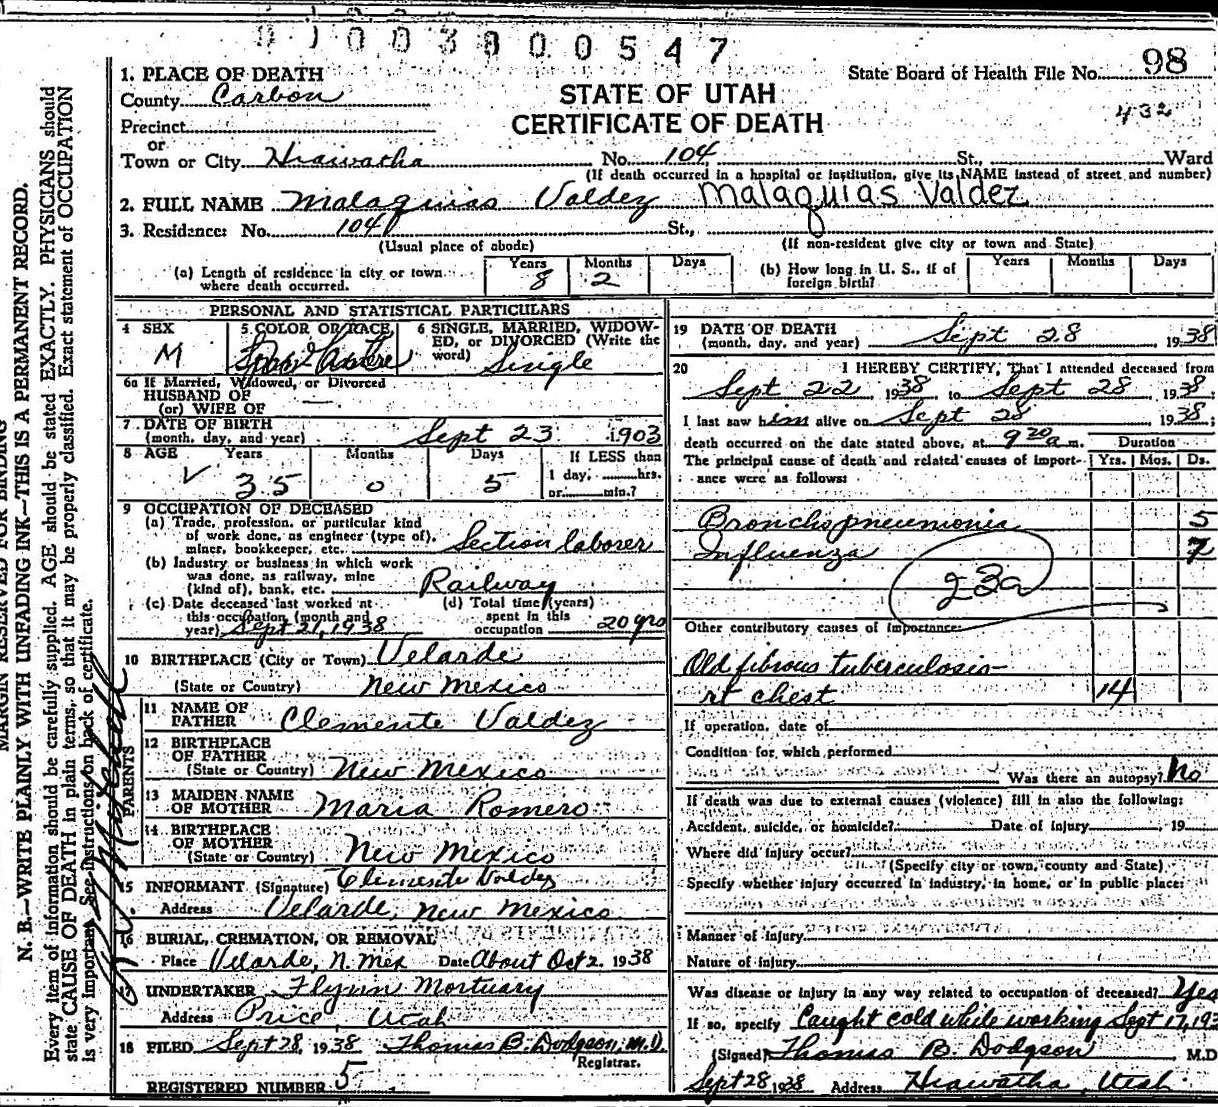 0100380 0547
98
State Board of Health File No.
432
STATE OF UTAH
CERTIFICATE OF DEATH
1. PLACE OF DEATH
County Carbon
Precinct
or
Town or City Hiawatha No. 104 St., Ward
(If death occurred in a hospital or institution, give its NAME instead of street and number)
2. FULL NAME Malaquias Valdez Malaquias Valdez
3. Residence: No. 104 St.,
(Usual place of abode) (If non-resident give city or town and State)
(a) Length of residence in city or town where death occurred. Years 8 Months 2 Days
(b) How long in U. S., if of foreign birth? Years Months Days
PERSONAL AND STATISTICAL PARTICULARS
4 SEX M
5 COLOR OR RACE
6 SINGLE, MARRIED, WIDOWED, or DIVORCED (Write the word) Single
6a If Married, Widowed, or Divorced
HUSBAND OF
(or) WIFE OF
7 DATE OF BIRTH
(month, day, and year) Sept 23 1903
8 AGE Years 35 Months 0 Days 5 If LESS than
1 day, hrs.
or min.?
9 OCCUPATION OF DECEASED
(a) Trade, profession, or particular kind
of work done, as engineer (type of),
miner, bookkeeper, etc. Section laborer
(b) Industry or business in which work
was done, as railway, mine
(kind of), bank, etc. Railway
(c) Date deceased last worked at
this occupation (month and
year) Sept 21, 1938
(d) Total time (years)
spent in this
occupation 20 yrs
10 BIRTHPLACE (City or Town) Velarde
(State or Country) New Mexico
PARENTS
11 NAME OF
FATHER Clemente Valdez
12 BIRTHPLACE
OF FATHER
(State or Country) New Mexico
13 MAIDEN NAME
OF MOTHER Maria Romero
14 BIRTHPLACE
OF MOTHER
(State or Country) New Mexico
15 INFORMANT (Signature) Clemente Valdez
Address Velarde, New Mexico
16 BURIAL, CREMATION, OR REMOVAL
Place Velarde, N. Mex Date About Oct 2. 1938
UNDERTAKER Flynn Mortuary
Address Price, Utah
18 FILED Sept 28, 1938 Thomas B. Dodgson, M.D.
Registrar.
REGISTERED NUMBER 5
19 DATE OF DEATH
(month, day, and year) Sept 28, 1938
20 I HEREBY CERTIFY, That I attended deceased from
Sept 22, 1938 to Sept 28, 1938,
I last saw him alive on Sept 28 1938;
death occurred on the date stated above, at 9 20 a.m. Duration
The principal cause of death and related causes of importance were as follows: Yrs. Mos. Ds.
Bronchopneumonia 5
Influenza 7
23a
Other contributory causes of importance:
Old fibrous tuberculosis
rt chest 14
If operation, date of
Condition for which performed
Was there an autopsy? No
If death was due to external causes (violence) fill in also the following:
Accident, suicide, or homicide? Date of injury , 19
Where did injury occur?
(Specify city or town, county and State)
Specify whether injury occurred in industry, in home, or in public place:
Manner of injury
Nature of injury
Was disease or injury in any way related to occupation of deceased? Yes
If so, specify Caught cold while working Sept 17, 193
(Signed) Thomas B. Dodgson, M.D
Sept 28 1938 Address Hiawatha, Utah
MARGIN RESERVED FOR BINDING
N. B.—WRITE PLAINLY WITH UNFADING INK—THIS IS A PERMANENT RECORD.
Every item of information should be carefully supplied. AGE should be stated EXACTLY. PHYSICIANS should
state CAUSE OF DEATH in plain terms, so that it may be properly classified. Exact statement of OCCUPATION
is very important. See instructions on back of certificate.